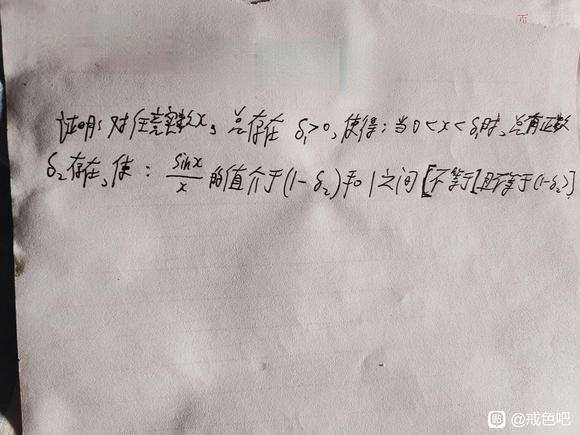 证明:对任意实数x,总存在 δ₁>0,使得:当0<x<δ₁时,总有正数
δ₂存在,使: sinx/x 的值介于(1-δ₂)和1之间[不等于1且不等于(1-δ₂)]
贴 @戒色吧